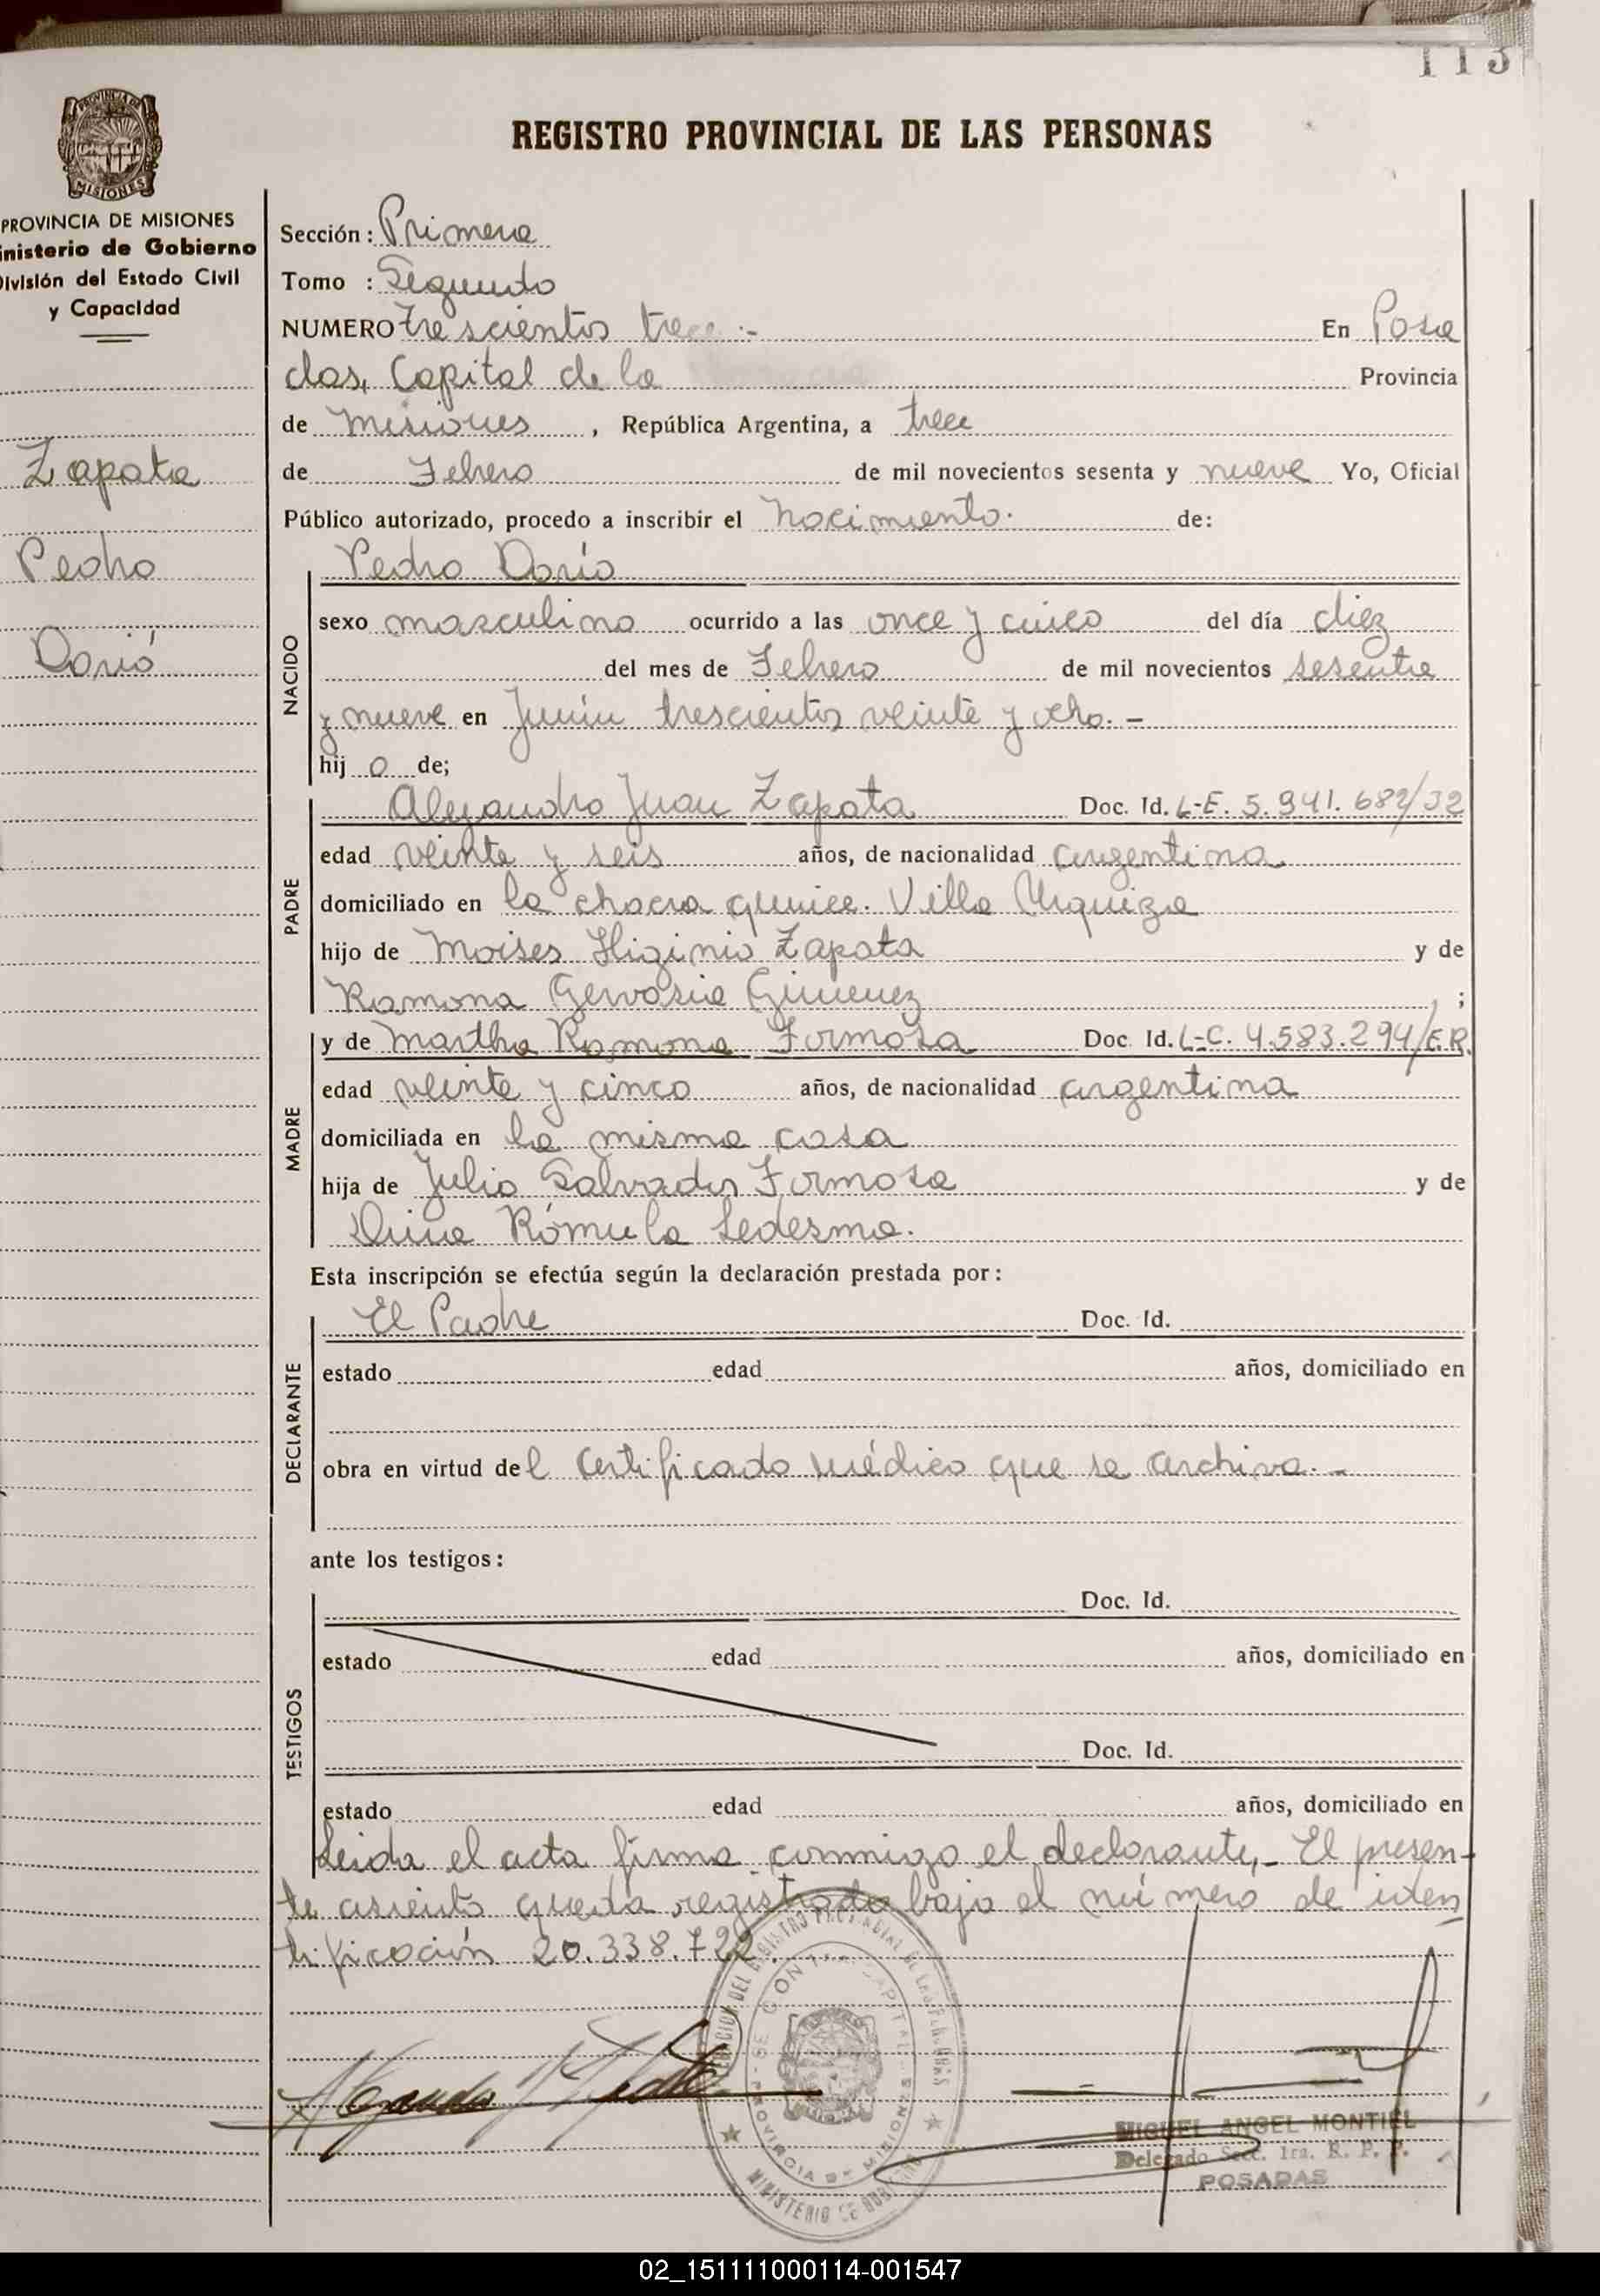 113
PROVINCIA DE MISIONES
REGISTRO PROVINCIAL DE LAS PERSONAS
PROVINCIA DE MISIONES
inisterio de Gobierno
División del Estado Civil
y Capacidad
Zapata
Pedro
Darió
Sección: Primera
Tomo : Segundo
NUMERO trescientos trece.- En Posa
das, Capital de la Provincia
de Misiones , República Argentina, a trece
de Febrero de mil novecientos sesenta y nueve Yo, Oficial
Público autorizado, procedo a inscribir el nacimiento. de:
NACIDO
Pedro Darío
sexo masculino ocurrido a las once y cinco del día diez
del mes de Febrero de mil novecientos sesenta
y nueve en Junín trescientos veinte y ocho.-
hij o de;
PADRE
Alejandro Juan Zapata Doc. Id. L-E. 5.941.682/32
edad veinte y seis años, de nacionalidad argentina
domiciliado en la chacra quince. Villa Urquiza
hijo de Moises Higinio Zapata y de
Ramona Gervasia Gimenez ;
MADRE
y de Martha Ramona Formosa Doc. Id. L-C. 4.583.294/E.R.
edad veinte y cinco años, de nacionalidad argentina
domiciliada en la misma casa
hija de Julio Salvador Formosa y de
Rómula Ledesma.
Esta inscripción se efectúa según la declaración prestada por:
DECLARANTE
El Padre Doc. Id.
estado edad años, domiciliado en
obra en virtud del certificado médico que se archiva.-
ante los testigos:
TESTIGOS
Doc. Id.
estado edad años, domiciliado en
Doc. Id.
estado edad años, domiciliado en
Leida el acta firma conmigo el declarante,- El presen-
te asiento queda registrado bajo el número de iden
tificación 20.338.722
MINISTERIO DE GOBIERNO
PROVINCIA DE MISIONES
MIGUEL ANGEL MONTIEL
Delegado Secc. 1ra. R. P. P.
POSADAS
02_151111000114-001547